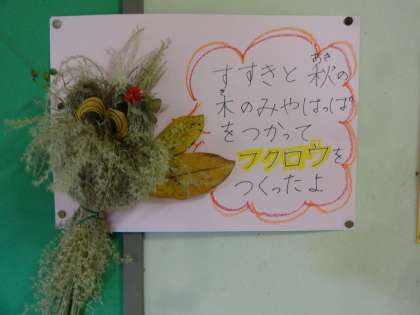 すすきと秋の
木のみやはっぱ
をつかって
フクロウを
つくったよ